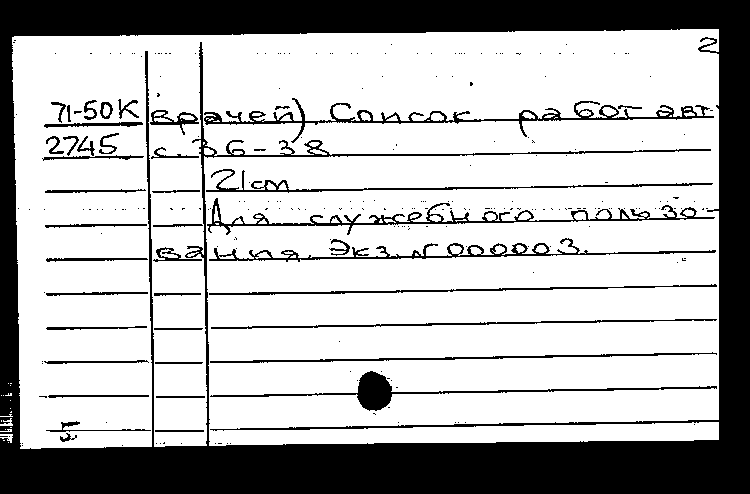 2
71-50К врачей). Список работ авт
2745 с. 36-38
21cm
Для служебного пользо-
вания. Экз. № 000003.